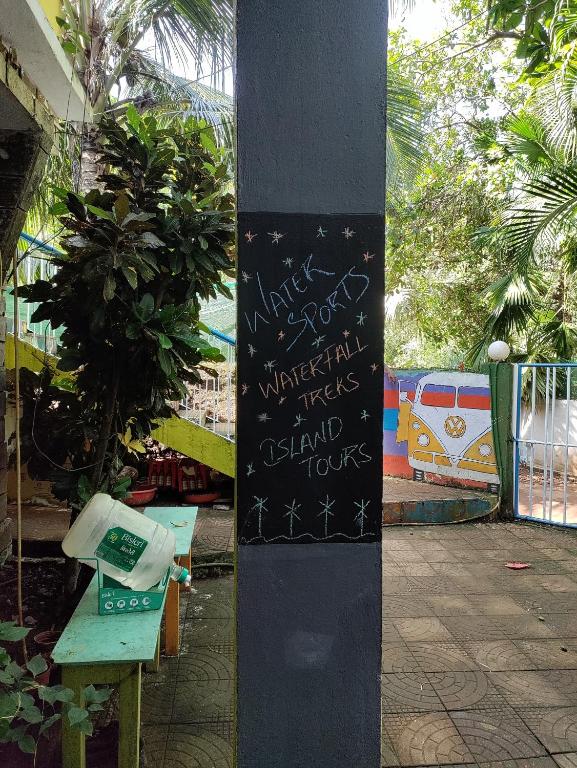 WATER
SPORTS
WATERFALL
TREKS
ISLAND
TOURS
Bisleri